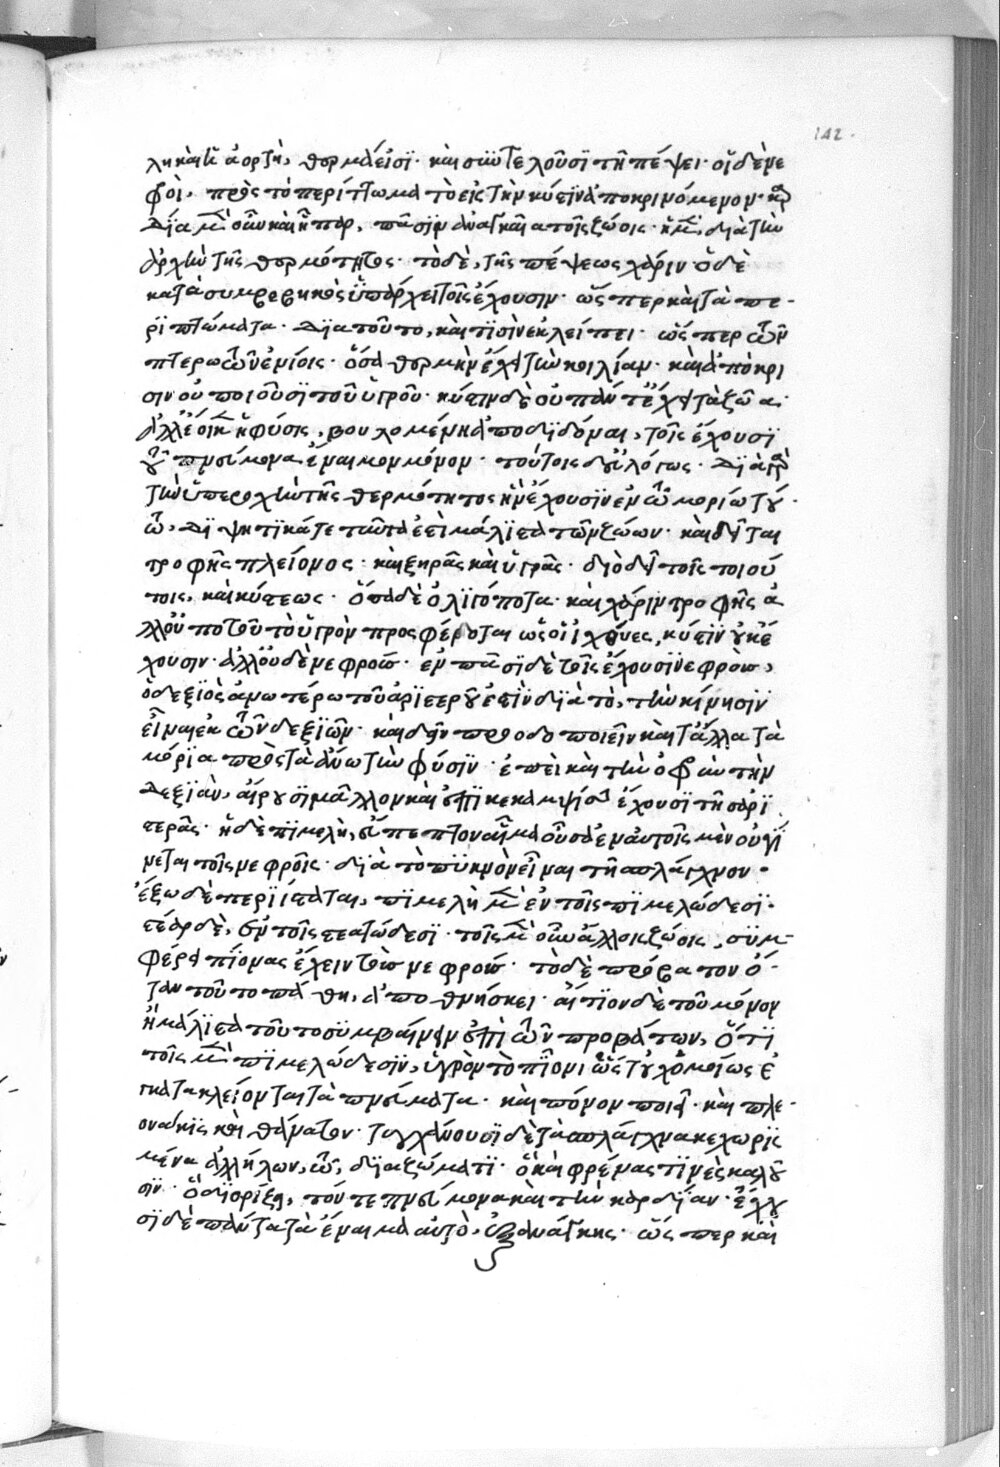 142.
λη καὶ ἡ ἀορτὴ, θερμαί εἰσϊ· καὶ συντελοῦσϊ τῆ πέψει· οἱ δὲ νε
φροὶ, πρὸς τὸ περίττωμα τὸ εἰς τὴν κύστιν ἀποκρινόμενον·
διὰ μὲν οὖν καὶ ἧπαρ, πᾶσϊν ἀναγκαῖα τοῖς ζώοις· ἡ μὲν, διὰ τὴν
ἀρχὴν τῆς θερμότητος· τὸ δὲ, τῆς πέψεως χάριν· ὁ δὲ
κατὰ συμβεβηκὸς ὑπάρχει τοῖς ἔχουσιν· ὥς περ καὶ τὰ πε-
ρϊττώματα· δϊὰ τοῦτο, καὶ τϊσὶν ἐκλείπει· ὥς περ τῶν
πτερωτῶν ἐνίοις· ὅσα θερμὴν ἔχει τὴν κοιλίαν· καὶ ἀπόκρι
σιν οὐ ποιοῦσϊ τοῦ ὑγροῦ· κύστιν δὲ οὐ πάντ' ἔχει τὰ ζῶα·
ἀλλ' ἔοικεν ἡ φύσις, βουλομένη ἀποδϊδόναι, τοῖς ἔχουσϊ
πνεύμονα ἔναιμον μόνον· τούτοις δ' εὐλόγως· δϊὰ
τὴν ὑπεροχὴν τῆς θερμότητος ἣν ἔχουσϊν ἐν τῶ μορίω τού
τω, δϊψητϊκά τε ταῦτά ἐστὶ μάλϊστα τῶν ζώων· καὶ δεῖται
τροφῆς πλείονος· καὶ ξηρᾶς καὶ ὑγρᾶς· διὸ δεῖ τοῖς τοιού
τοις, καὶ κύστεως· ὅσα δὲ ὀλϊγόποτα· καὶ χάριν τροφῆς ἀ
λλ' οὐ ποτοῦ τὸ ὑγρὸν προσφέρεται ὡς οἱ ἰχθύες, κύστϊν οὐκ ἔ
χουσιν· ἀλλ' οὐδὲ νεφρούς· ἐν πᾶσϊ δὲ τοῖς ἔχουσϊ νεφροὺς,
ὁ δεξϊὸς ἀνωτέρω τοῦ ἀρϊστεροῦ ἐστὶν δϊὰ τὸ, τὴν κίνησϊν
εἶναι ἐκ τῶν δεξϊῶν· καὶ δεῖν προοδοποιεῖν καὶ τἄλλα τὰ
μόρϊα πρὸς τὰ ἄνω τὴν φύσϊν· ἐπεὶ καὶ τὴν ὀφρῦν τὴν
δεξϊὰν, αἴρουσϊ μᾶλλον καὶ ἐπικεκαμμένην ἔχουσϊ τῆς ἀρϊ
στερᾶς· ἡ δὲ πϊμελὴ, εὔπεπτον αἷμα οὖσα ἐν αὐτοῖς μὲν οὐ γί
νεται τοῖς νεφροῖς· δϊὰ τὸ πϋκνὸν εἶναι τὴν σπλάγχνον·
ἔξω δὲ περϊίσταται, πϊμελὴ μὲν ἐν τοῖς πϊμελώδεσϊ·
στέαρ δὲ, ἐν τοῖς στεατώδεσϊ· τοῖς μὲν οὖν ἄλλοις ζώοις, σϋμ-
φέρει πίονας ἔχειν τοὺς νεφρούς· τὸ δὲ πρόβατον ὅ-
ταν τοῦτο πάθη, ἀποθνήσκει· αἴτϊον δὲ τοῦ μόνον
ἢ μάλϊστα τοῦτο σϋμβαίνειν ἐπὶ τῶν προβάτων, ὅτϊ
τοῖς μὲν πϊμελώδεσϊν, ὑγρὸν τὸ πῖον ὥστ' οὐχ ὁμοίως ἐ
γκατακλείονται τὰ πνεύματα· καὶ πόνον ποιεῖ· καὶ πλε-
ονάκϊς καὶ θάνατον· τυγχάνουσϊ δὲ τὰ σπλάγχνα κεχωρϊσ
μένα ἀλλήλων, τῶ, δϊαζώματϊ· ὃ καὶ φρένας τϊνὲς καλοῦ
σϊν· ὃ δϊορίζει, τόν τε πνεύμονα καὶ τὴν καρδϊαν· ἔχου
σϊ δὲ πάντα τὰ ἔναιμα αὐτὸ, ἐξ ἀνάγκης· ὥς περ καὶ